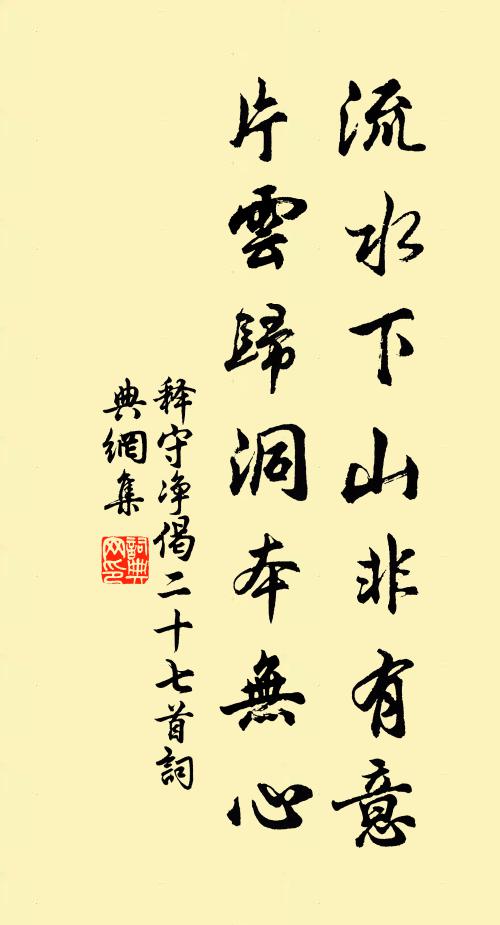 流水下山非有意
片雲歸洞本無心
释守净偈二十七首詞
典網集
詞典網印